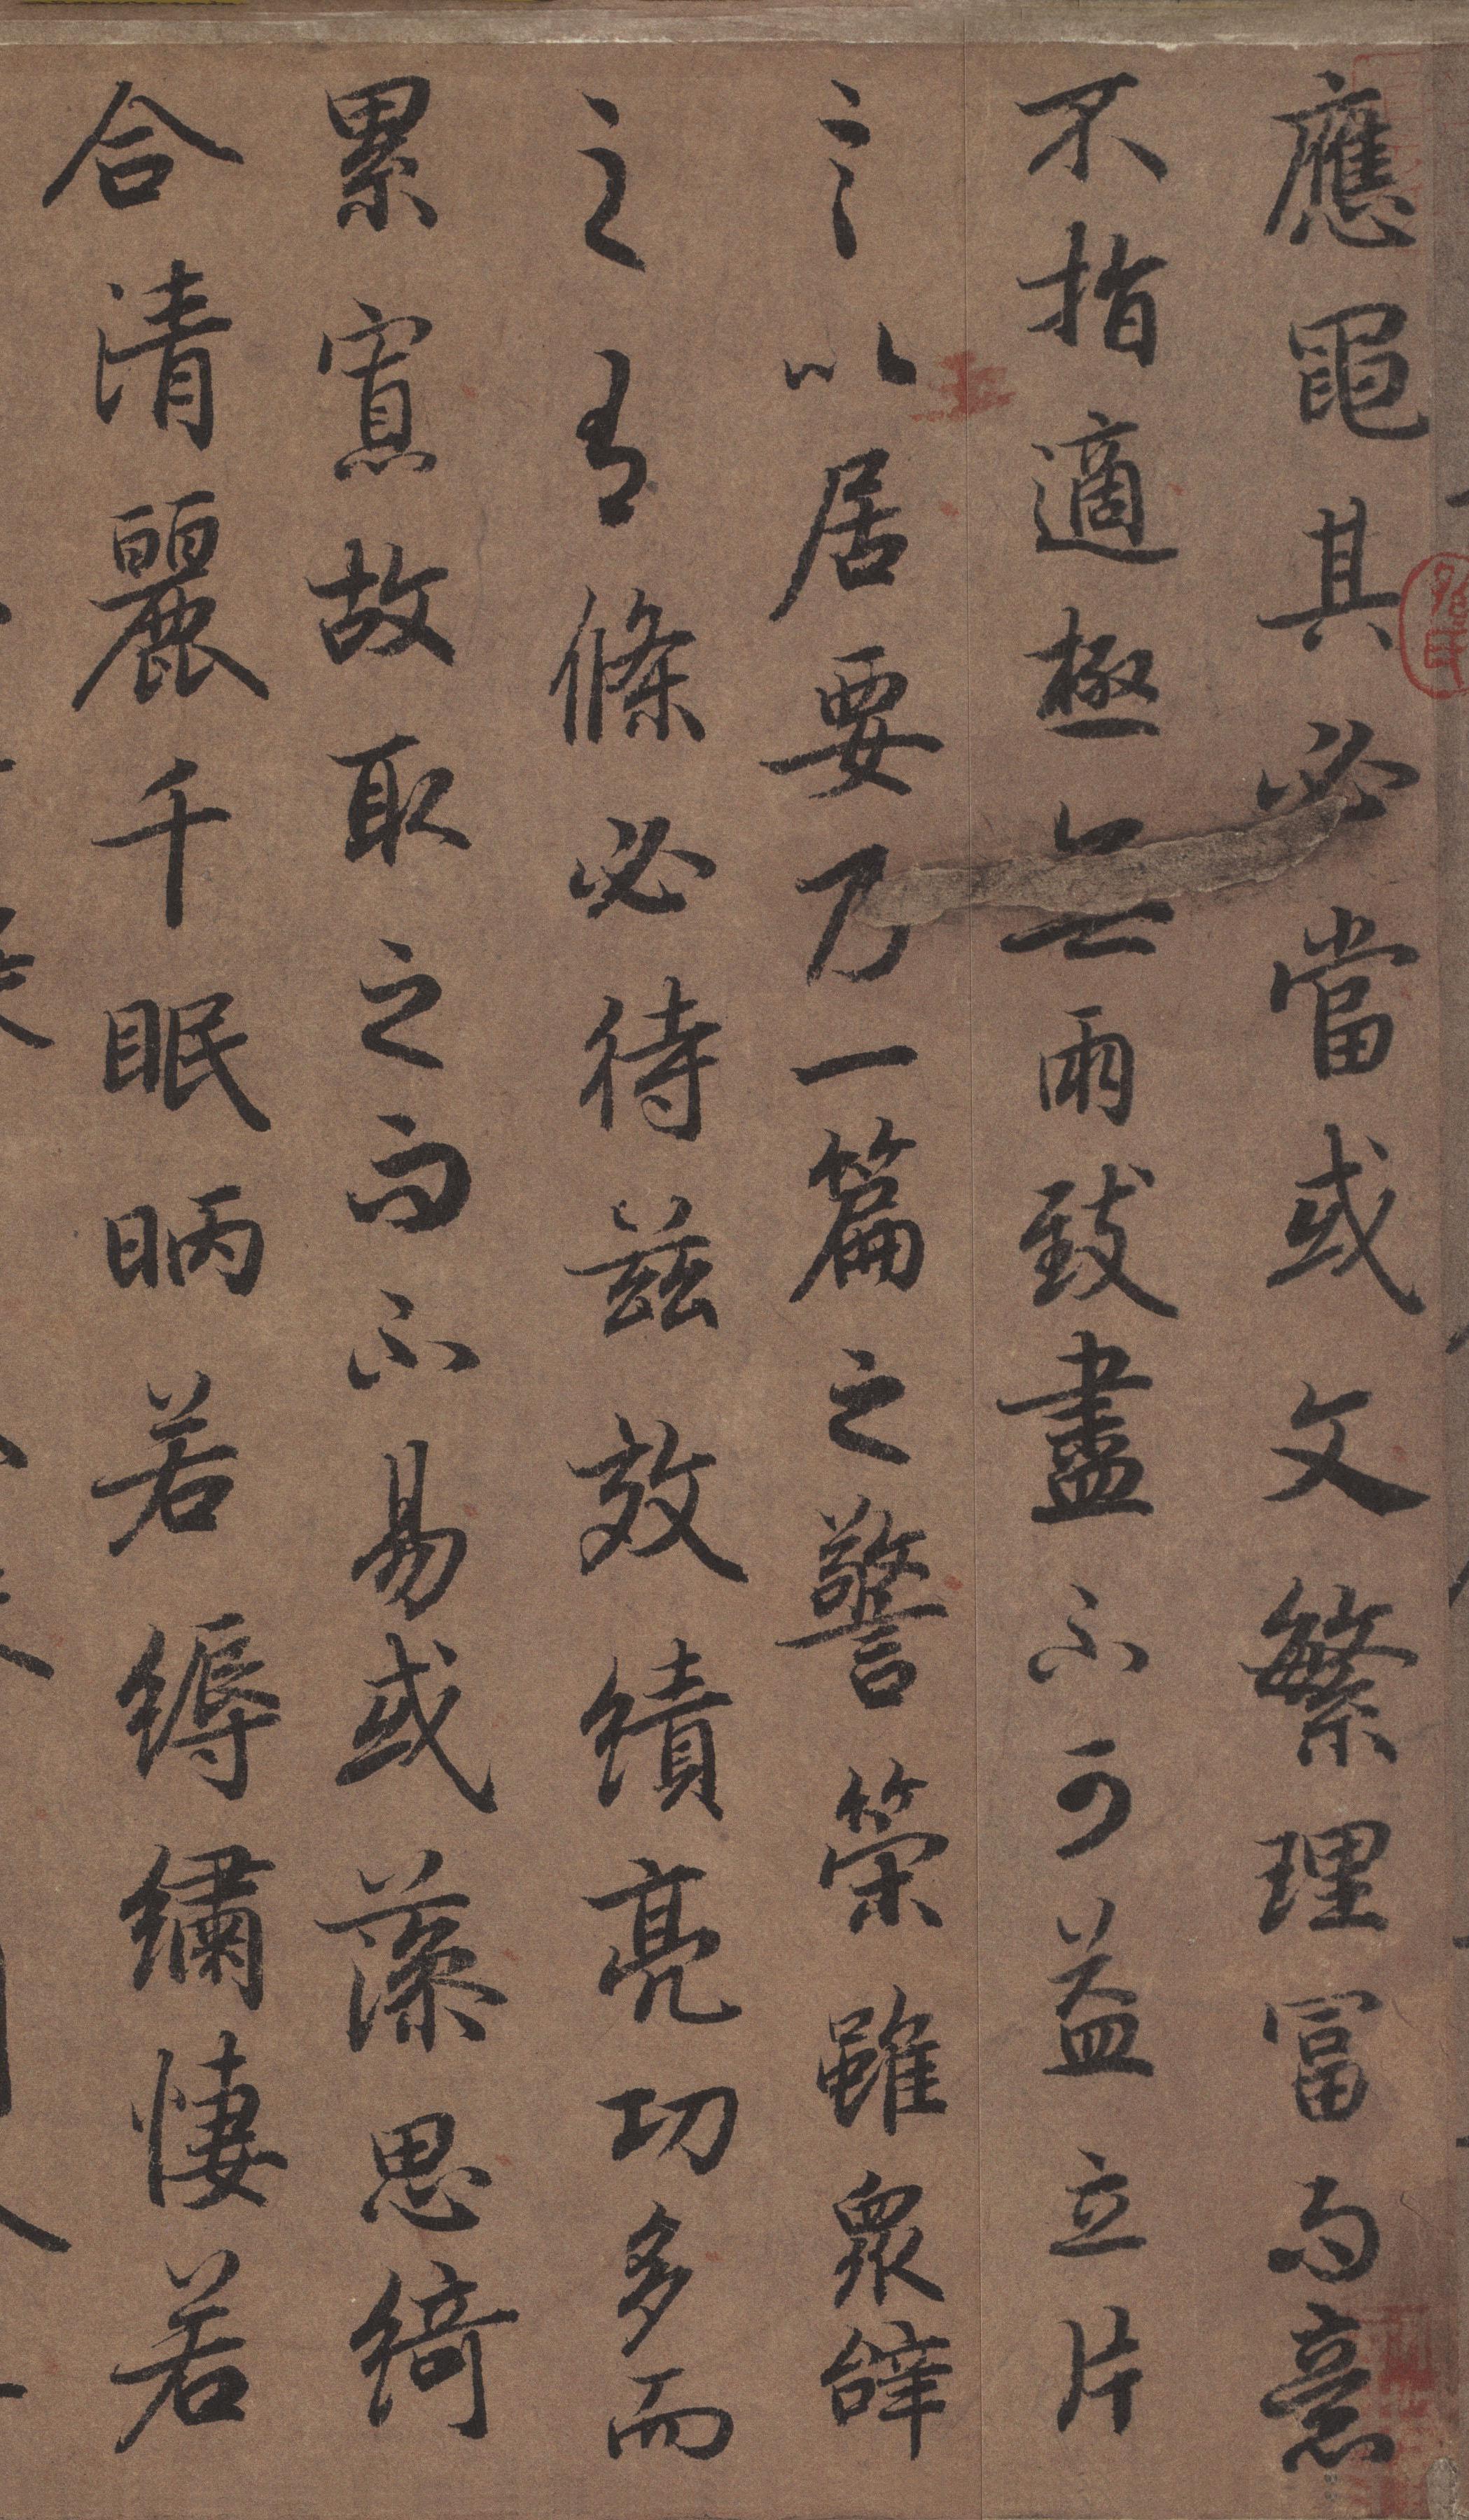 應黽其必當或文繁理冨而意
不指適極無兩致盡不可益立片
言以居要乃一篇之警策雖眾辭
之有條必待茲效績亮功多而
累寡故取之而不易或藻思綺
合清麗千眠昞若縟繡悽若